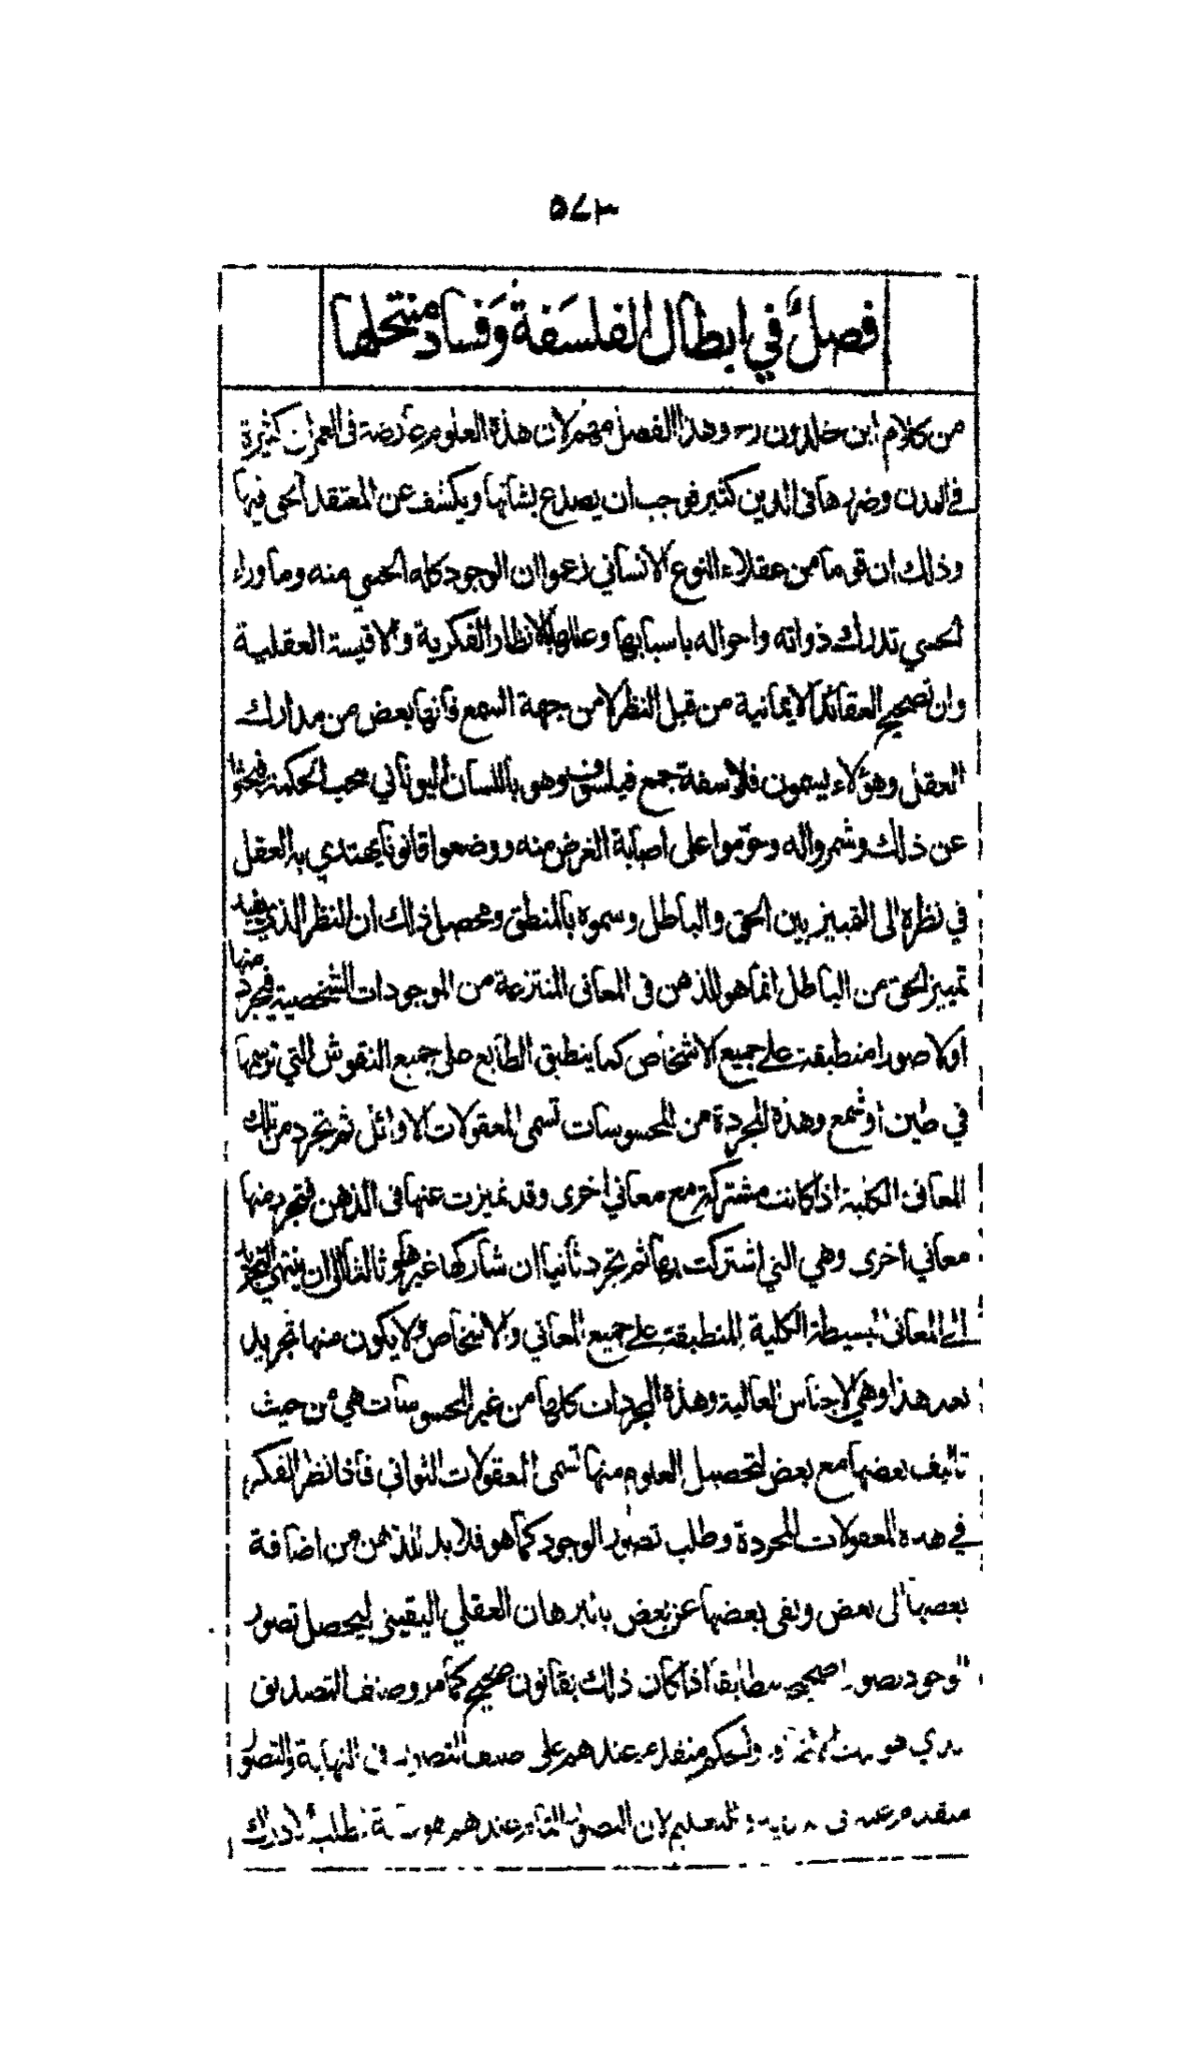 ٥٧٣
فصل في ابطال الفلسفة وفساد منتحلها
من كلام ابن خلدون رح وهذا الفصل مهم لان هذه العلوم عارضة في العمران كثيرة
في المدن وضررها في الدين كثير فوجب ان يصدع بشأنها ويكشف عن المعتقد الحق فيها
وذلك ان قوما من عقلاء النوع الانساني زعموا ان الوجود كله الحسي منه وما وراء
الحسي تدرك ذواته واحواله باسبابها وعللها بالانظار الفكرية والاقيسة العقلية
وان تصحيح العقائد الايمانية من قبل النظر لا من جهة السمع فانها بعض من مدارك
العقل وهؤلاء يسمون فلاسفة جمع فيلسوف وهو باللسان اليوناني محب الحكمة فبحثوا
عن ذلك وشمروا له وحوموا على اصابة الغرض منه ووضعوا قانونا يهتدي به العقل
في نظره الى التمييز بين الحق والباطل وسموه بالمنطق ومحصل ذلك ان النظر الذي يفيد
تمييز الحق من الباطل انما هو للذهن في المعاني المنتزعة من الموجودات الشخصية فيجرد منها
اولا صورا منطبقة على جميع الاشخاص كما ينطبق الطابع على جميع النقوش التي ترسمها
في طين او شمع وهذه المجردة من المحسوسات تسمى المعقولات الاوائل ثم تجرد من تلك
المعاني الكلية اذا كانت مشتركة مع معاني اخرى وقد تميزت عنها في الذهن فتجرد منها
معاني اخرى وهي التي اشتركت بها ثم تجرد ثانيا ان شاركها غيرها وثالثا الى ان ينتهي التجريد
الى المعاني البسيطة الكلية المنطبقة على جميع المعاني والاشخاص ولا يكون منها تجريد
بعد هذا وهي الاجناس العالية وهذه المجردات كلها من غير المحسوسات هي من حيث
تاليف بعضها مع بعض لتحصيل العلوم منها تسمى المعقولات الثواني فاذا نظر الفكر
في هذه المعقولات المجردة وطلب تصور الوجود كما هو فلا بد للذهن من اضافة
بعضها الى بعض ونفي بعضها عن بعض بالبرهان العقلي اليقيني ليحصل تصور
الوجود تصورا صحيحا مطابقا اذا كان ذلك بقانون صحيح كما مر وصنف التصديق
الذي هو والحكم متقدم عندهم على صنف التصور في النهاية والتصور
متقدم عليه في والتعليم لان التصور التام عندهم هو غاية لطلب الادراك